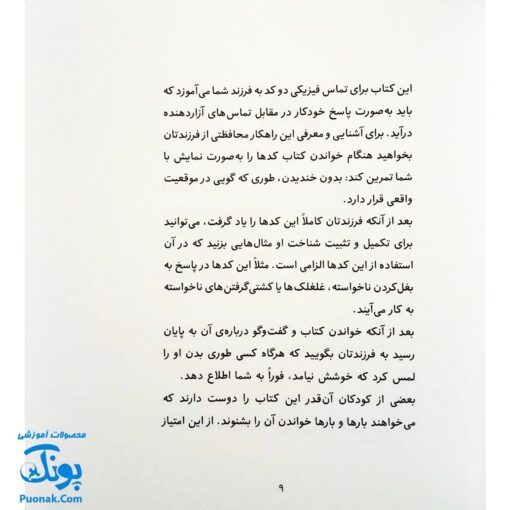 این کتاب برای تماس فیزیکی دو کد به فرزند شما می‌آموزد که
باید به‌صورت پاسخ خودکار در مقابل تماس‌های آزاردهنده
درآید. برای آشنایی و معرفی این راهکار محافظتی از فرزندتان
بخواهید هنگام خواندن کتاب کدها را به‌صورت نمایش با
شما تمرین کند: بدون خندیدن، طوری که گویی در موقعیت
واقعی قرار دارد.
بعد از آنکه فرزندتان کاملاً این کدها را یاد گرفت، می‌توانید
برای تکمیل و تثبیت شناخت او مثال‌هایی بزنید که در آن
استفاده از این کدها الزامی است. مثلاً این کدها در پاسخ به
بغل‌کردن ناخواسته، غلغلک‌ها یا کشتی‌گرفتن‌های ناخواسته
به کار می‌آیند.
بعد از آنکه خواندن کتاب و گفت‌وگو درباره‌ی آن به پایان
رسید به فرزندتان بگویید که هرگاه کسی طوری بدن او را
لمس کرد که خوشش نیامد، فوراً به شما اطلاع دهد.
بعضی از کودکان آن‌قدر این کتاب را دوست دارند که
می‌خواهند بارها و بارها خواندن آن را بشنوند. از این امتیاز
۹
محصولات آموزشی
پونک
Puonak.Com